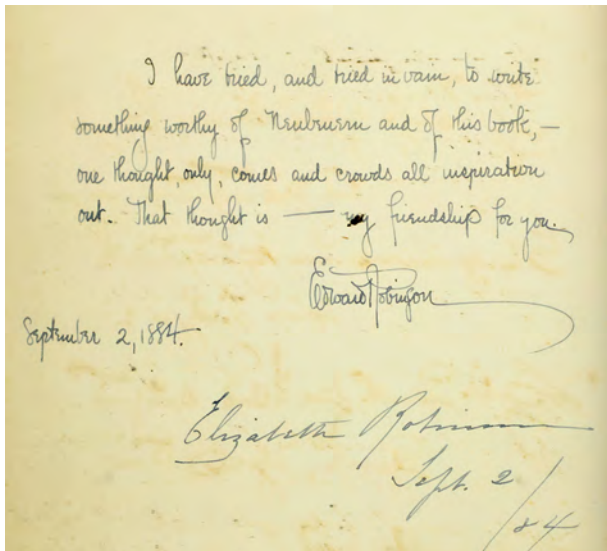 I have tried, and tried in vain, to write
something worthy of Neubeuern and of this book, —
one thought, only, comes and crowds all inspiration
out. That thought is — my friendship for you.
Edward Robinson
September 2, 1884.
Elizabeth Robinson
Sept. 2
/84